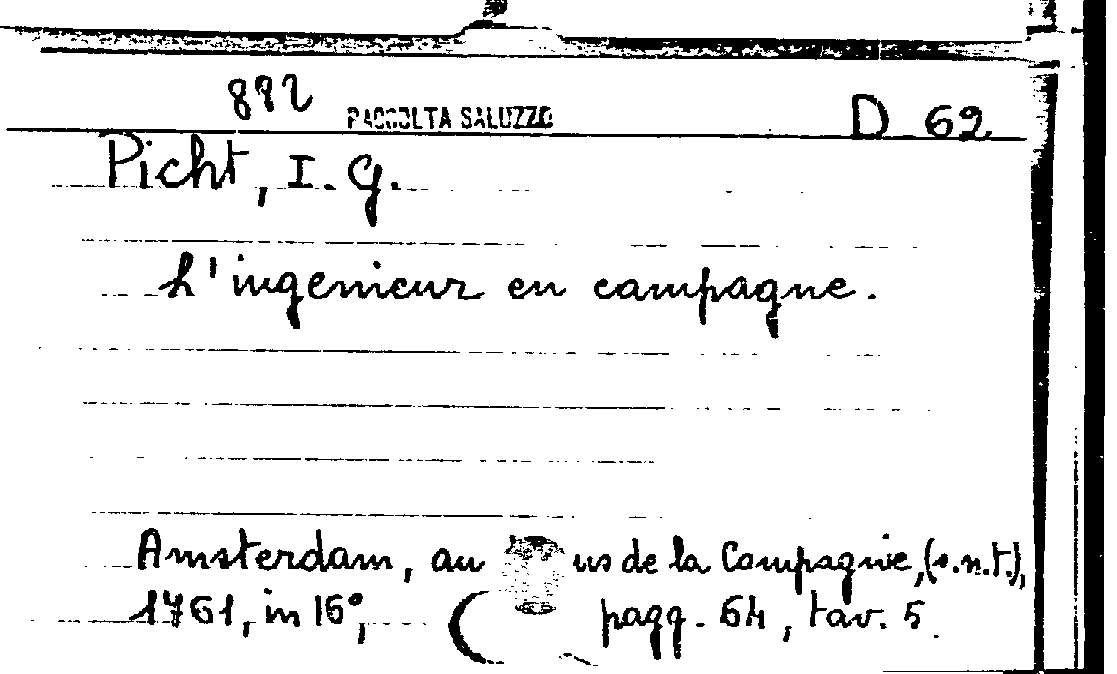 892 RACCOLTA SALUZZO D 69
Picht, I. G.
L'ingenieur en campagne.
Amsterdam, au us de la Campagnie, (s.n.t.),
1761, in 16°, pagg. 64, tav. 5.